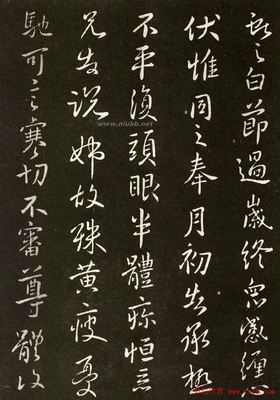 獻之白節過歲終衆感纏心
伏惟同之奉月初告承極
不平復頭眼半體疼恒惡
兄告說姊故殊黃瘦憂
馳可言寒切不審尊體復
www.niubb.net